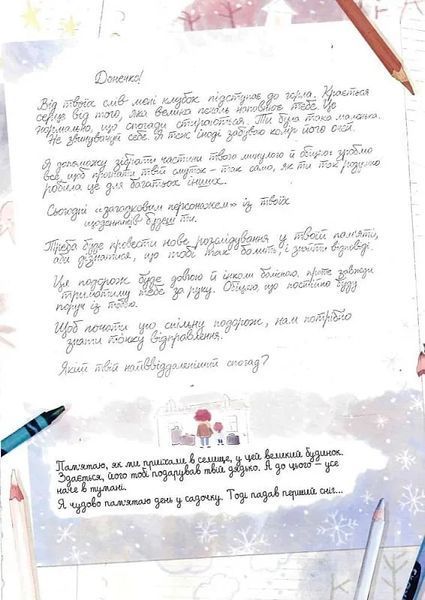 Донечко!
Від твоїх слів мені клубок підступає до горла. Крається
серце від того, яка велика печаль наповнює тебе. Це
нормально, що спогади стираються. Ти була така маленька.
Не звинувачуй себе. Я теж іноді забуваю колір його очей.
Я допоможу зібрати частини твого минулого й обіцяю: зроблю
все, щоб прогнати твій смуток – так само, як ти так радило
робила це для багатьох інших.
Сьогодні «загадковим персонажем» із твоїх
щоденників будеш ти.
Треба буде провести нове розслідування у твоїй пам'яті,
аби дізнатися, що тобі так болить, і знайти відповіді.
Ця подорож буде довгою й інколи болісною, проте завжди
триматиму тебе за руку. Обіцяю, що постійно буду
поруч із тобою.
Щоб почати цю спільну подорож, нам потрібно
знати точку відправлення.
Який твій найвіддаленіший спогад?
Пам'ятаю, як ми приїхали в селище, у цей великий будинок.
Здається, його тобі подарував твій дядько. А до цього – усе
наче в тумані.
Я чудово пам'ятаю день у садочку. Тоді падав перший сніг...